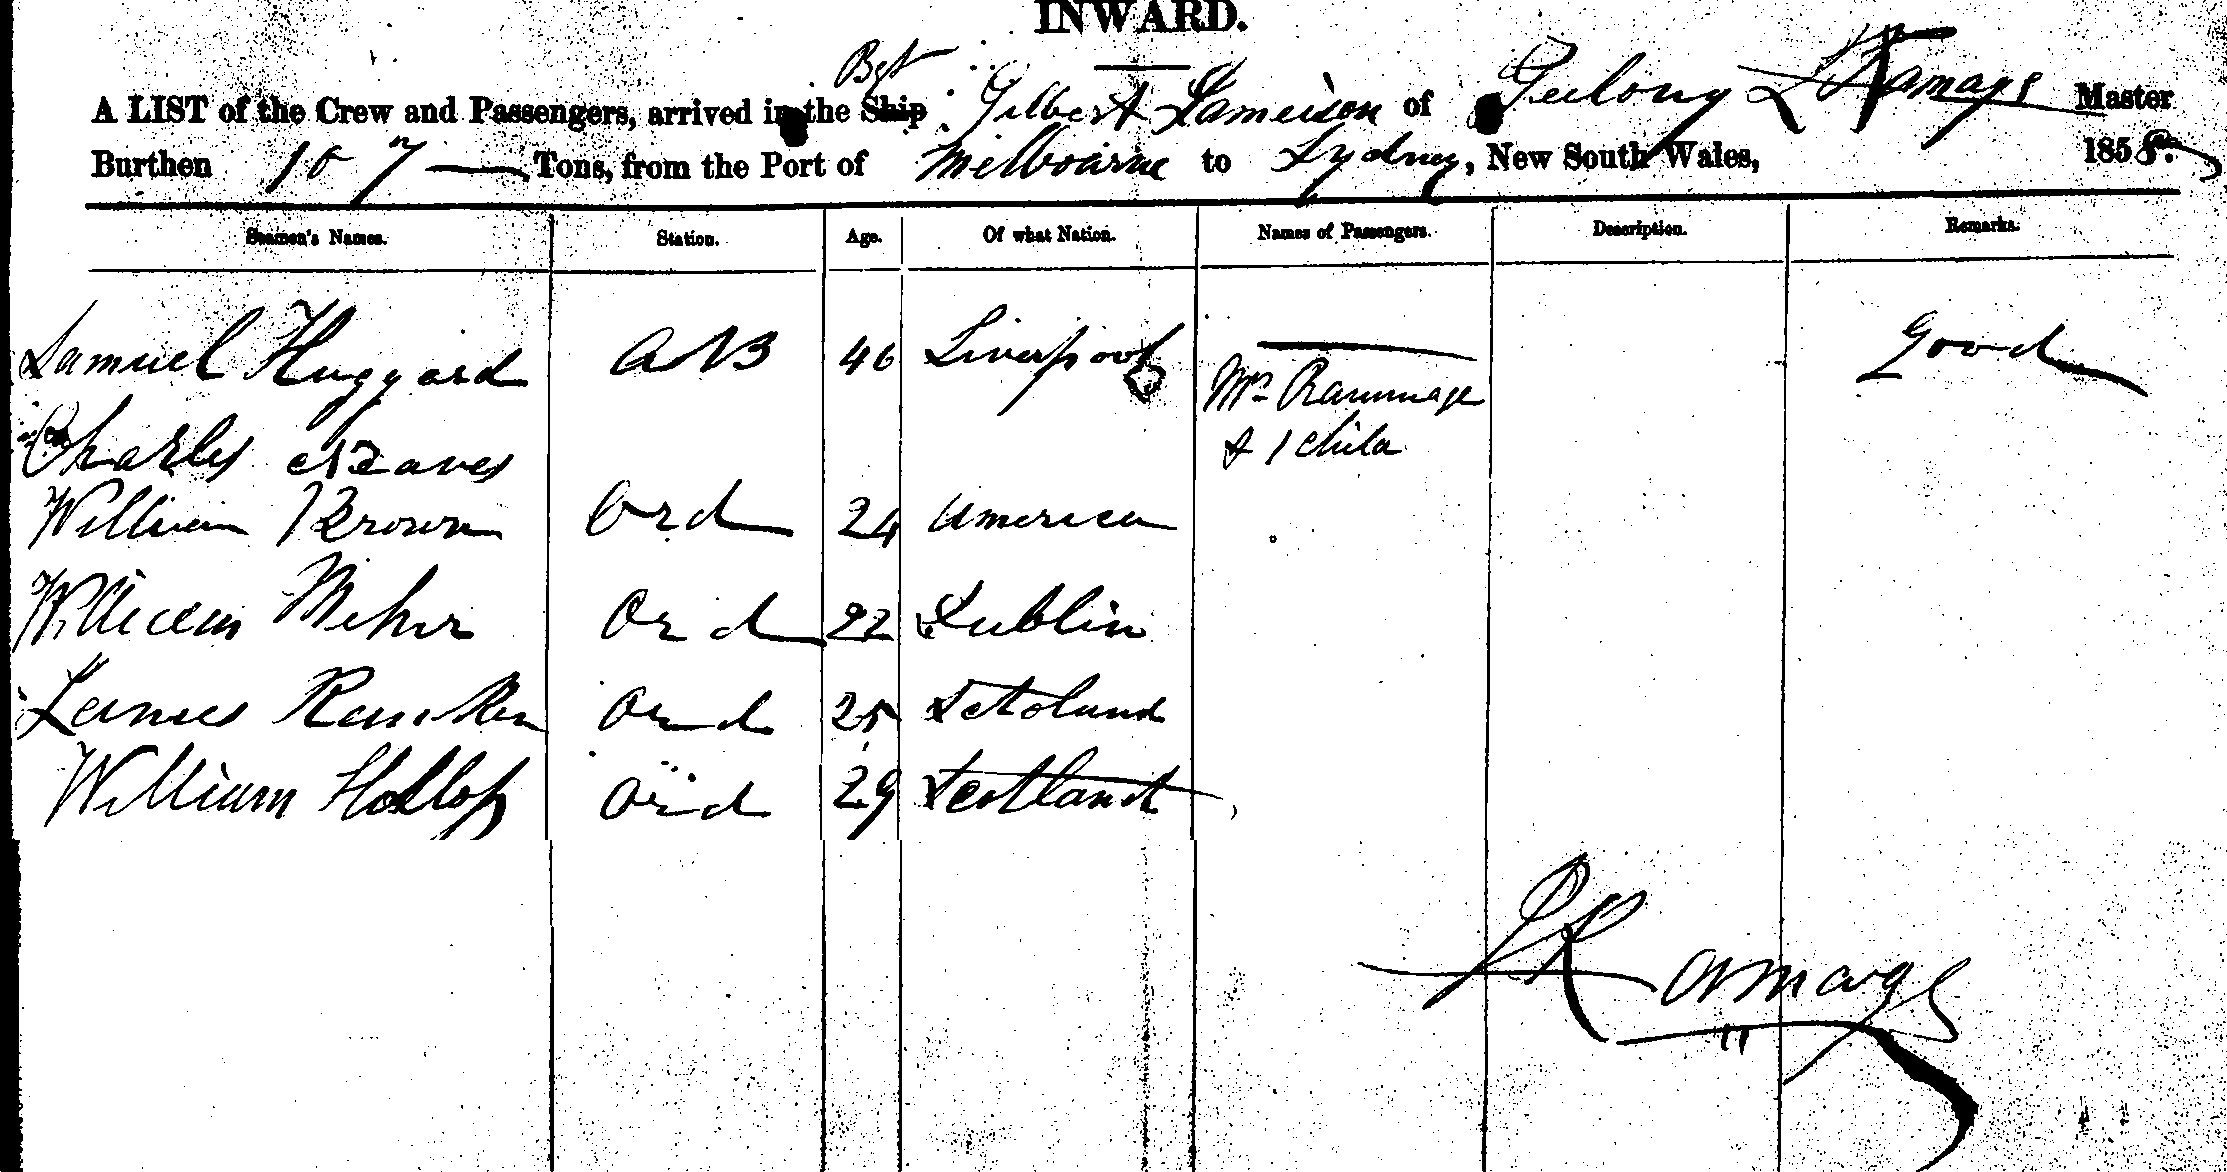 INWARD.
Bgt
A LIST of the Crew and Passengers, arrived in the Ship Gilbert Jameison of Geelong J Ramage Master
Burthen 107 Tons, from the Port of Melbourne to Sydney, New South Wales, 1858.
Seamen's Names. Station. Age. Of what Nation. Names of Passengers. Description. Remarks.
Samuel Huggard AB 46 Liverpool Good
Mrs Rammage
Charles & 1 Child
William Brown Ord 24 America
William Ord 22 Dublin
James Ranken Ord 25 Scotland
William Ord 29 Scotland
J Ramage